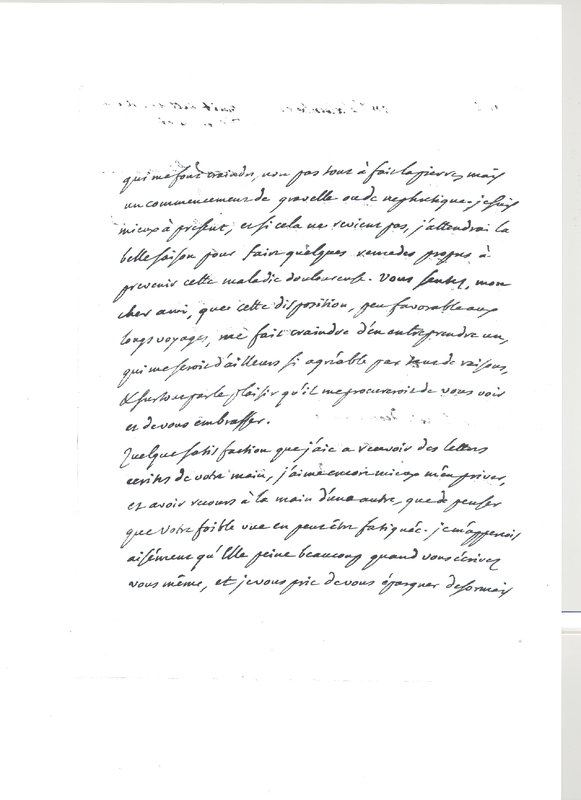 qui me font craindre, non pas tout à fait la pierre, mais
un commencement de gravelle ou de nephretique. je suis
mieux à present, et si cela ne revient pas, j'attendrai la
belle saison pour faire quelques remedes propres à
prevenir cette maladie douloureuse. Vous sentez, mon
cher ami, que cette disposition, peu favorable aux
longs voyages, me fait craindre d'en entreprendre un,
qui me seroit d'ailleurs si agréable par tant de raisons,
& surtout par le plaisir qu'il me procureroit de vous voir
et de vous embrasser.
Quelque satisfaction que j'aie a recevoir des lettres
ecrites de votre main, j'aime encore mieux m'en priver,
et avoir recours à la main d'une autre, que de penser
que votre foible vue en peut être fatiguée. je m'apperçois
aisément qu'Elle peine beaucoup quand vous écrivez
vous même, et je vous prie de vous épargner desormais